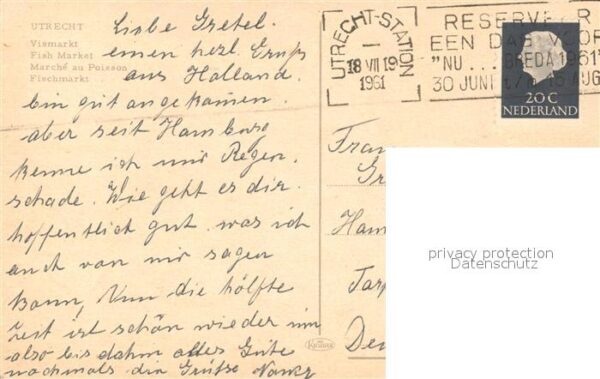 UTRECHT
Vismarkt
Fish Market
Marché au Poisson
Fischmarkt
Liebe Gretel.
einen herzl. Gruß
aus Holland.
bin gut angekommen.
aber seit Hamburg
kenne ich nur Regen.
schade. Wie geht es dir.
hoffentlich gut. was ich
auch von mir sagen
kann, Nun die hälfte
Zeit ist schön wieder um
also bis dahin alles Gute
nochmals die Grüße
UTRECHT-STATION
18 VII 19
1961
RESERVE R
EEN DAG VOOR
"NU ... BREDA 1961"
30 JUNI t/m 15 AUG
20 C
NEDERLAND
Frau
Gr
Ham
Tar
De
privacy protection
Datenschutz